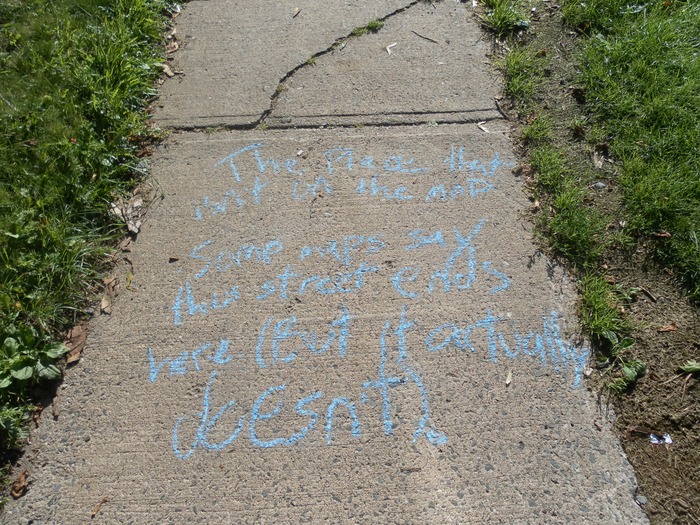 The Place that
isn't on the map
Some maps say
this street ends
here (But it actually
doesn't).